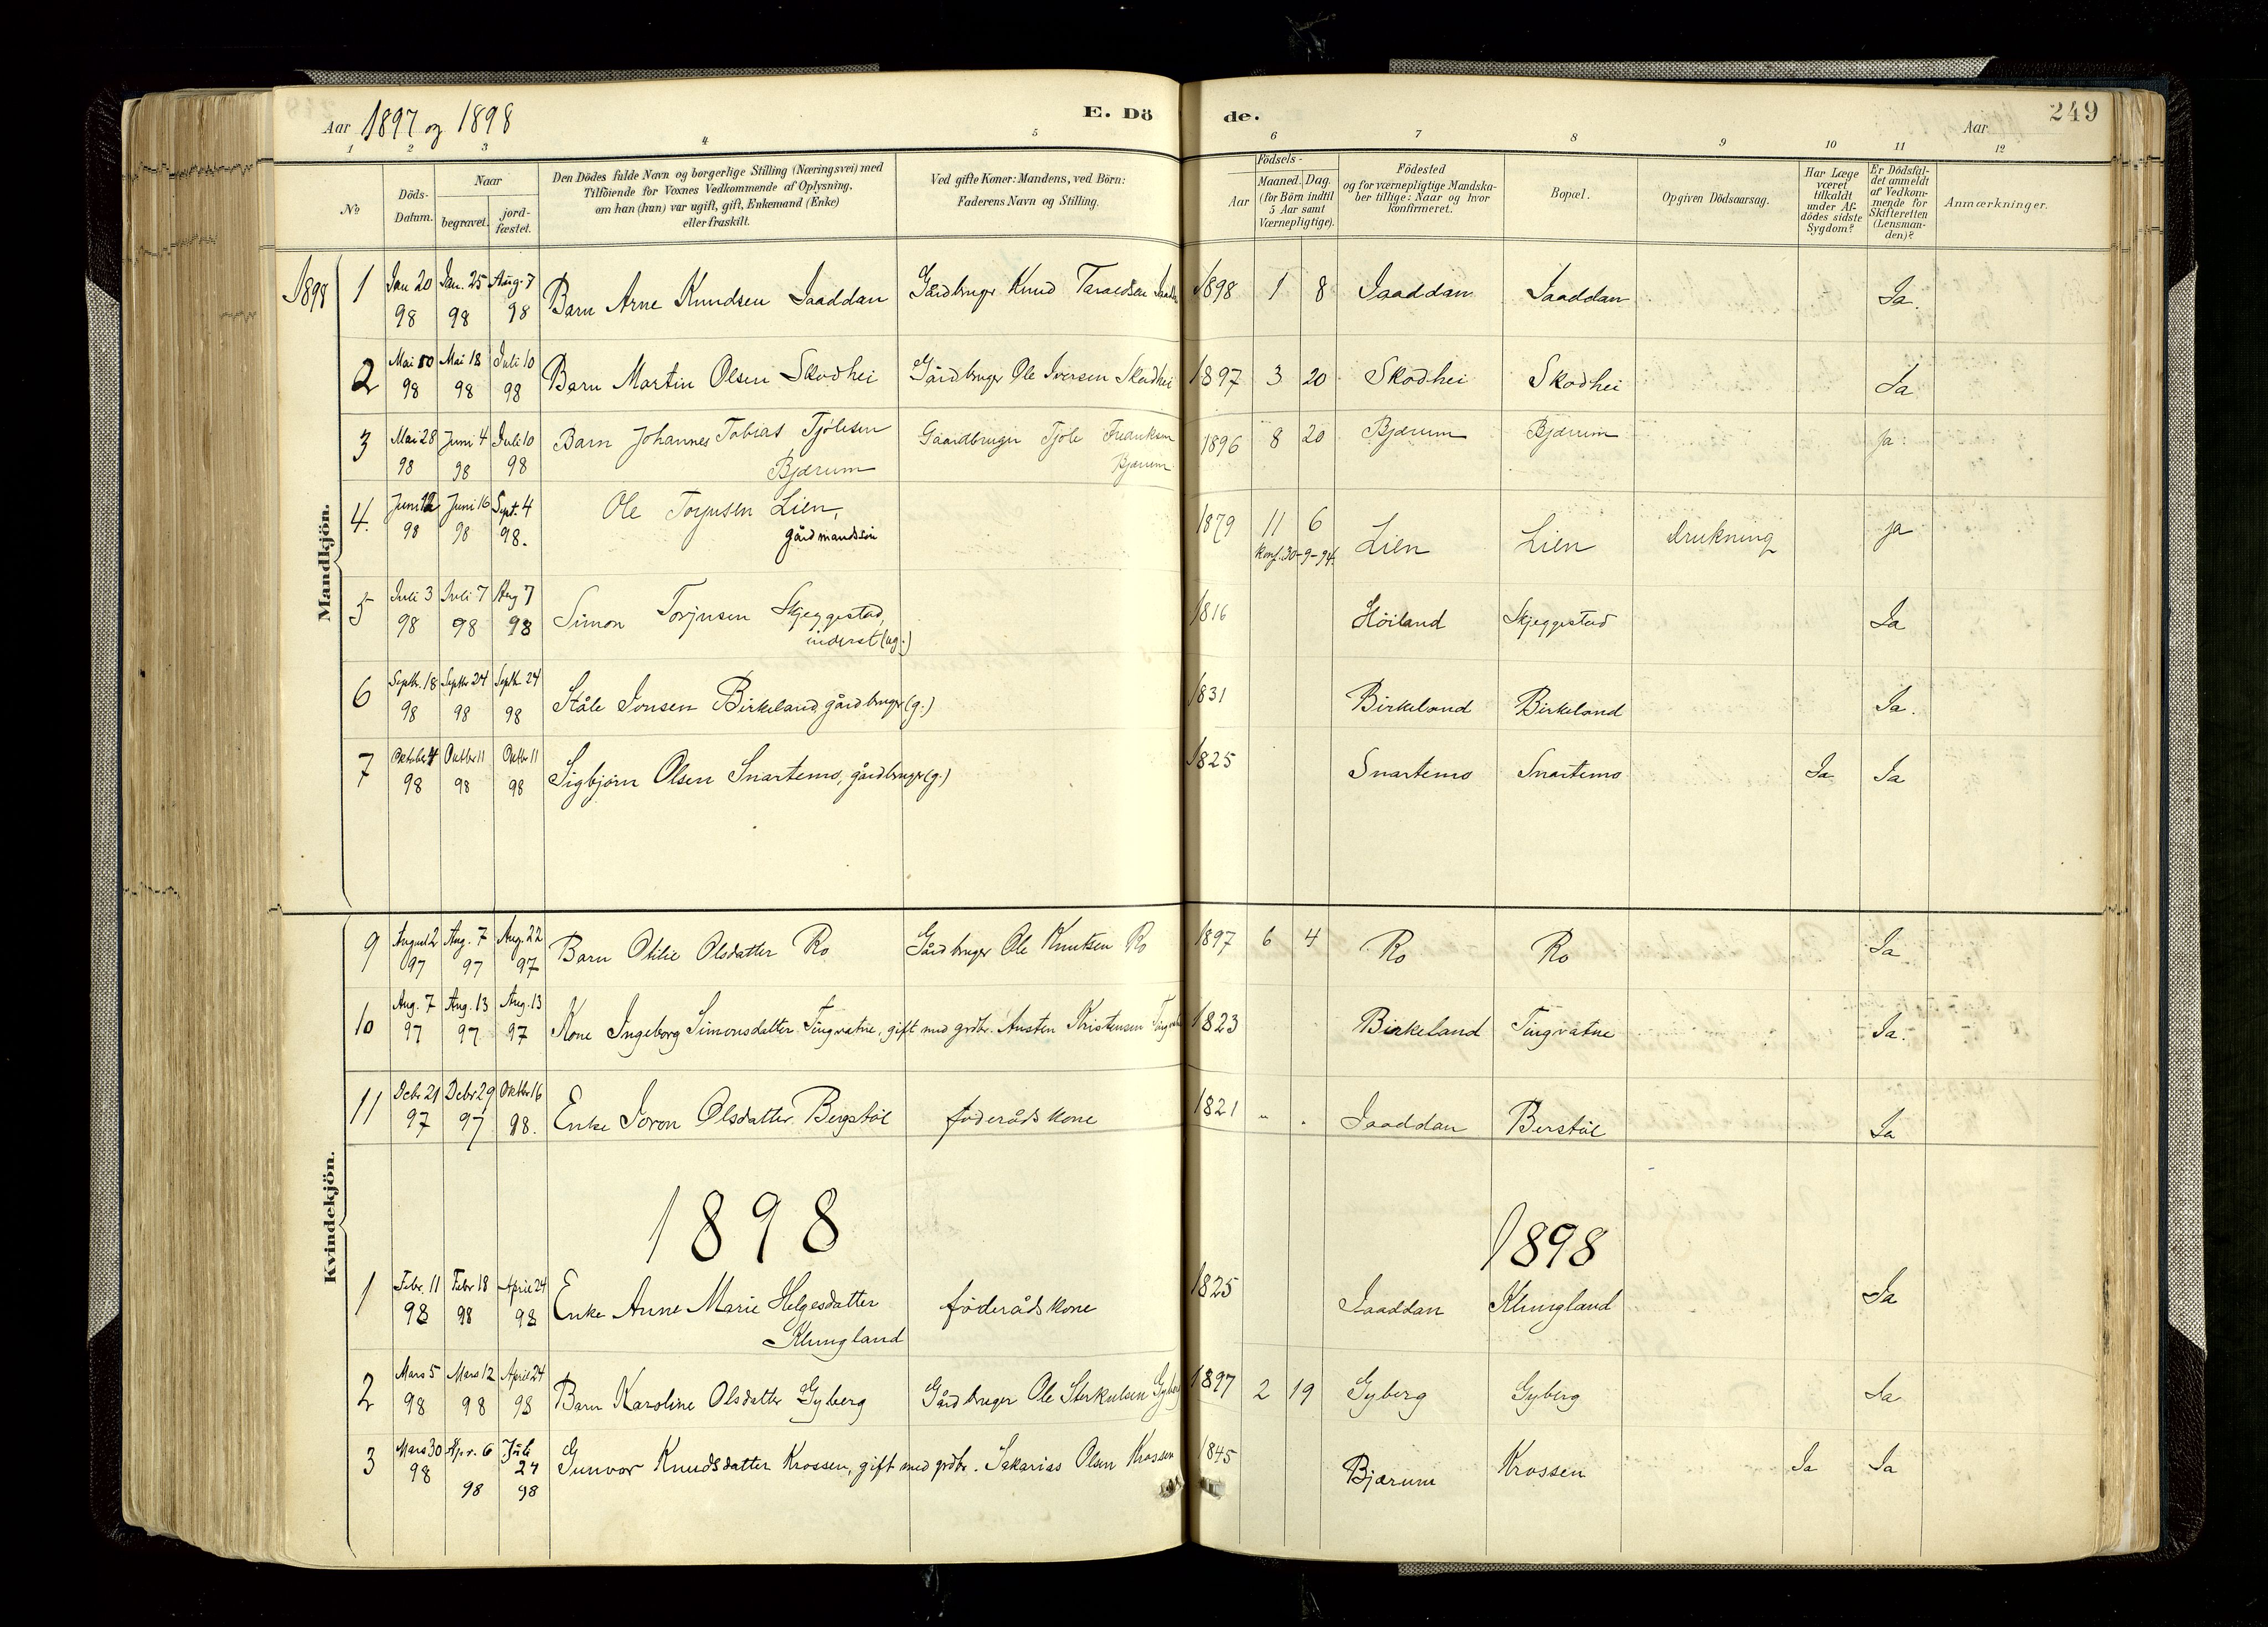 Aar 1897 og 1898
E. Dö
de.
Aar
249
1 2 3 4 5 6 7 8 9 10 11 12
No
Döds-
Datum.
Naar
begravet.
jord-
fæstet.
Den Dödes fulde Navn og borgerlige Stilling (Næringsvei) med
Tilföiende for Voxnes Vedkommende af Oplysning,
om han (hun) var ugift, gift, Enkemand (Enke)
eller fraskilt.
Ved gifte Koner: Mandens, ved Börn:
Faderens Navn og Stilling.
Födsels-
Aar
Maaned. Dag.
(for Börn indtil
5 Aar samt
Værnepligtige).
Födested
og for værnepligtige Mandska-
ber tillige: Naar og hvor
konfirmeret.
Bopæl.
Opgiven Dödsaarsag.
Har Læge
været
tilkaldt
under Af-
dödes sidste
Sygdom?
Er Dödsfal-
det anmeldt
af Vedkom-
mende for
Skifteretten
(Lensman-
den)?
Anmærkninger.
Mandkjön.
1898 1 Jan 20 Jan. 25 Aug. 7 Barn Arne Knudsen Jaaddan Gårdbruger Knud Taraldsen 1898 1 8 Jaaddan Jaaddan Ja.
98 98 98
2 Mai 10 Mai 18 Juli 10 Barn Martin Olsen Skodhei Gårdbruger Ole Iversen Skodhei 1897 3 20 Skodhei Skodhei Ja
98 98 98
3 Mai 28 Juni 4 Juli 10 Barn Johannes Tobias Tjölesen Gaardbruger Tjöle Fredriksen 1896 8 20 Bjærum Bjærum ja.
98 98 98 Bjærum Bjærum
4. Juni 12 Juni 16 Sept. 4 Ole Torjusen Lien, 1879 11 6 Lien Lien drukning ja
98 98 98. gårdmandssön konf. 30-9-94.
5 Juli 3 Juli 7 Aug 7 Simon Torjusen Skjeggestad, 1816 Höiland Skjeggestad Ja
98 98 98 inderst (ug.)
6 Septb. 18 Septbr 24 Septb 24 Ståle Jonsen Birkeland, gårdbruger (g.) 1831 Birkeland Birkeland Ja.
98 98 98
7 Oktober 4 Oktbr 11 Oktbr 11 Sigbjörn Olsen Snartemo, gårdbruger (g.) 1825 Snartemo Snartemo Ja Ja
98 98 98
Kvindekjön.
9 August 2 Aug. 7 Aug. 22 Barn Otilie Olsdatter Ro Gårdbruger Ole Knutsen Ro 1897 6 4 Ro Ro Ja
97 97 97
10 Aug. 7 Aug. 13 Aug. 13 Kone Ingeborg Simonsdatter Tingvatne, gift med grdbr. Austen Kristensen 1823 Birkeland Tingvatne Ja.
97 97 97
11 Debr 21 Debr 29 Oktbr 16 Enke Joron Olsdatter Bergstöl föderådskone 1821 " . Jaaddan Berstöl Ja
97 97 98.
1898 1898
1 Febr. 11 Febr 18 April 24 Enke Anne Marie Helgesdatter föderådskone 1825 Jaaddan Klungland Ja
98 98 98 Klungland
2 Mars 5 Mars 12 April 24 Barn Karoline Olsdatter Gyberg Gårdbruger Ole Sterkulsen Gyberg 1897 2 19 Gyberg Gyberg Ja
98 98 98
3 Mars 30 Apr. 6 Juli Gunvor Knudsdatter Krossen, gift med grdbr. Sakarias Olsen Krossen 1845 Bjærum Krossen Ja Ja
98 98 24
98